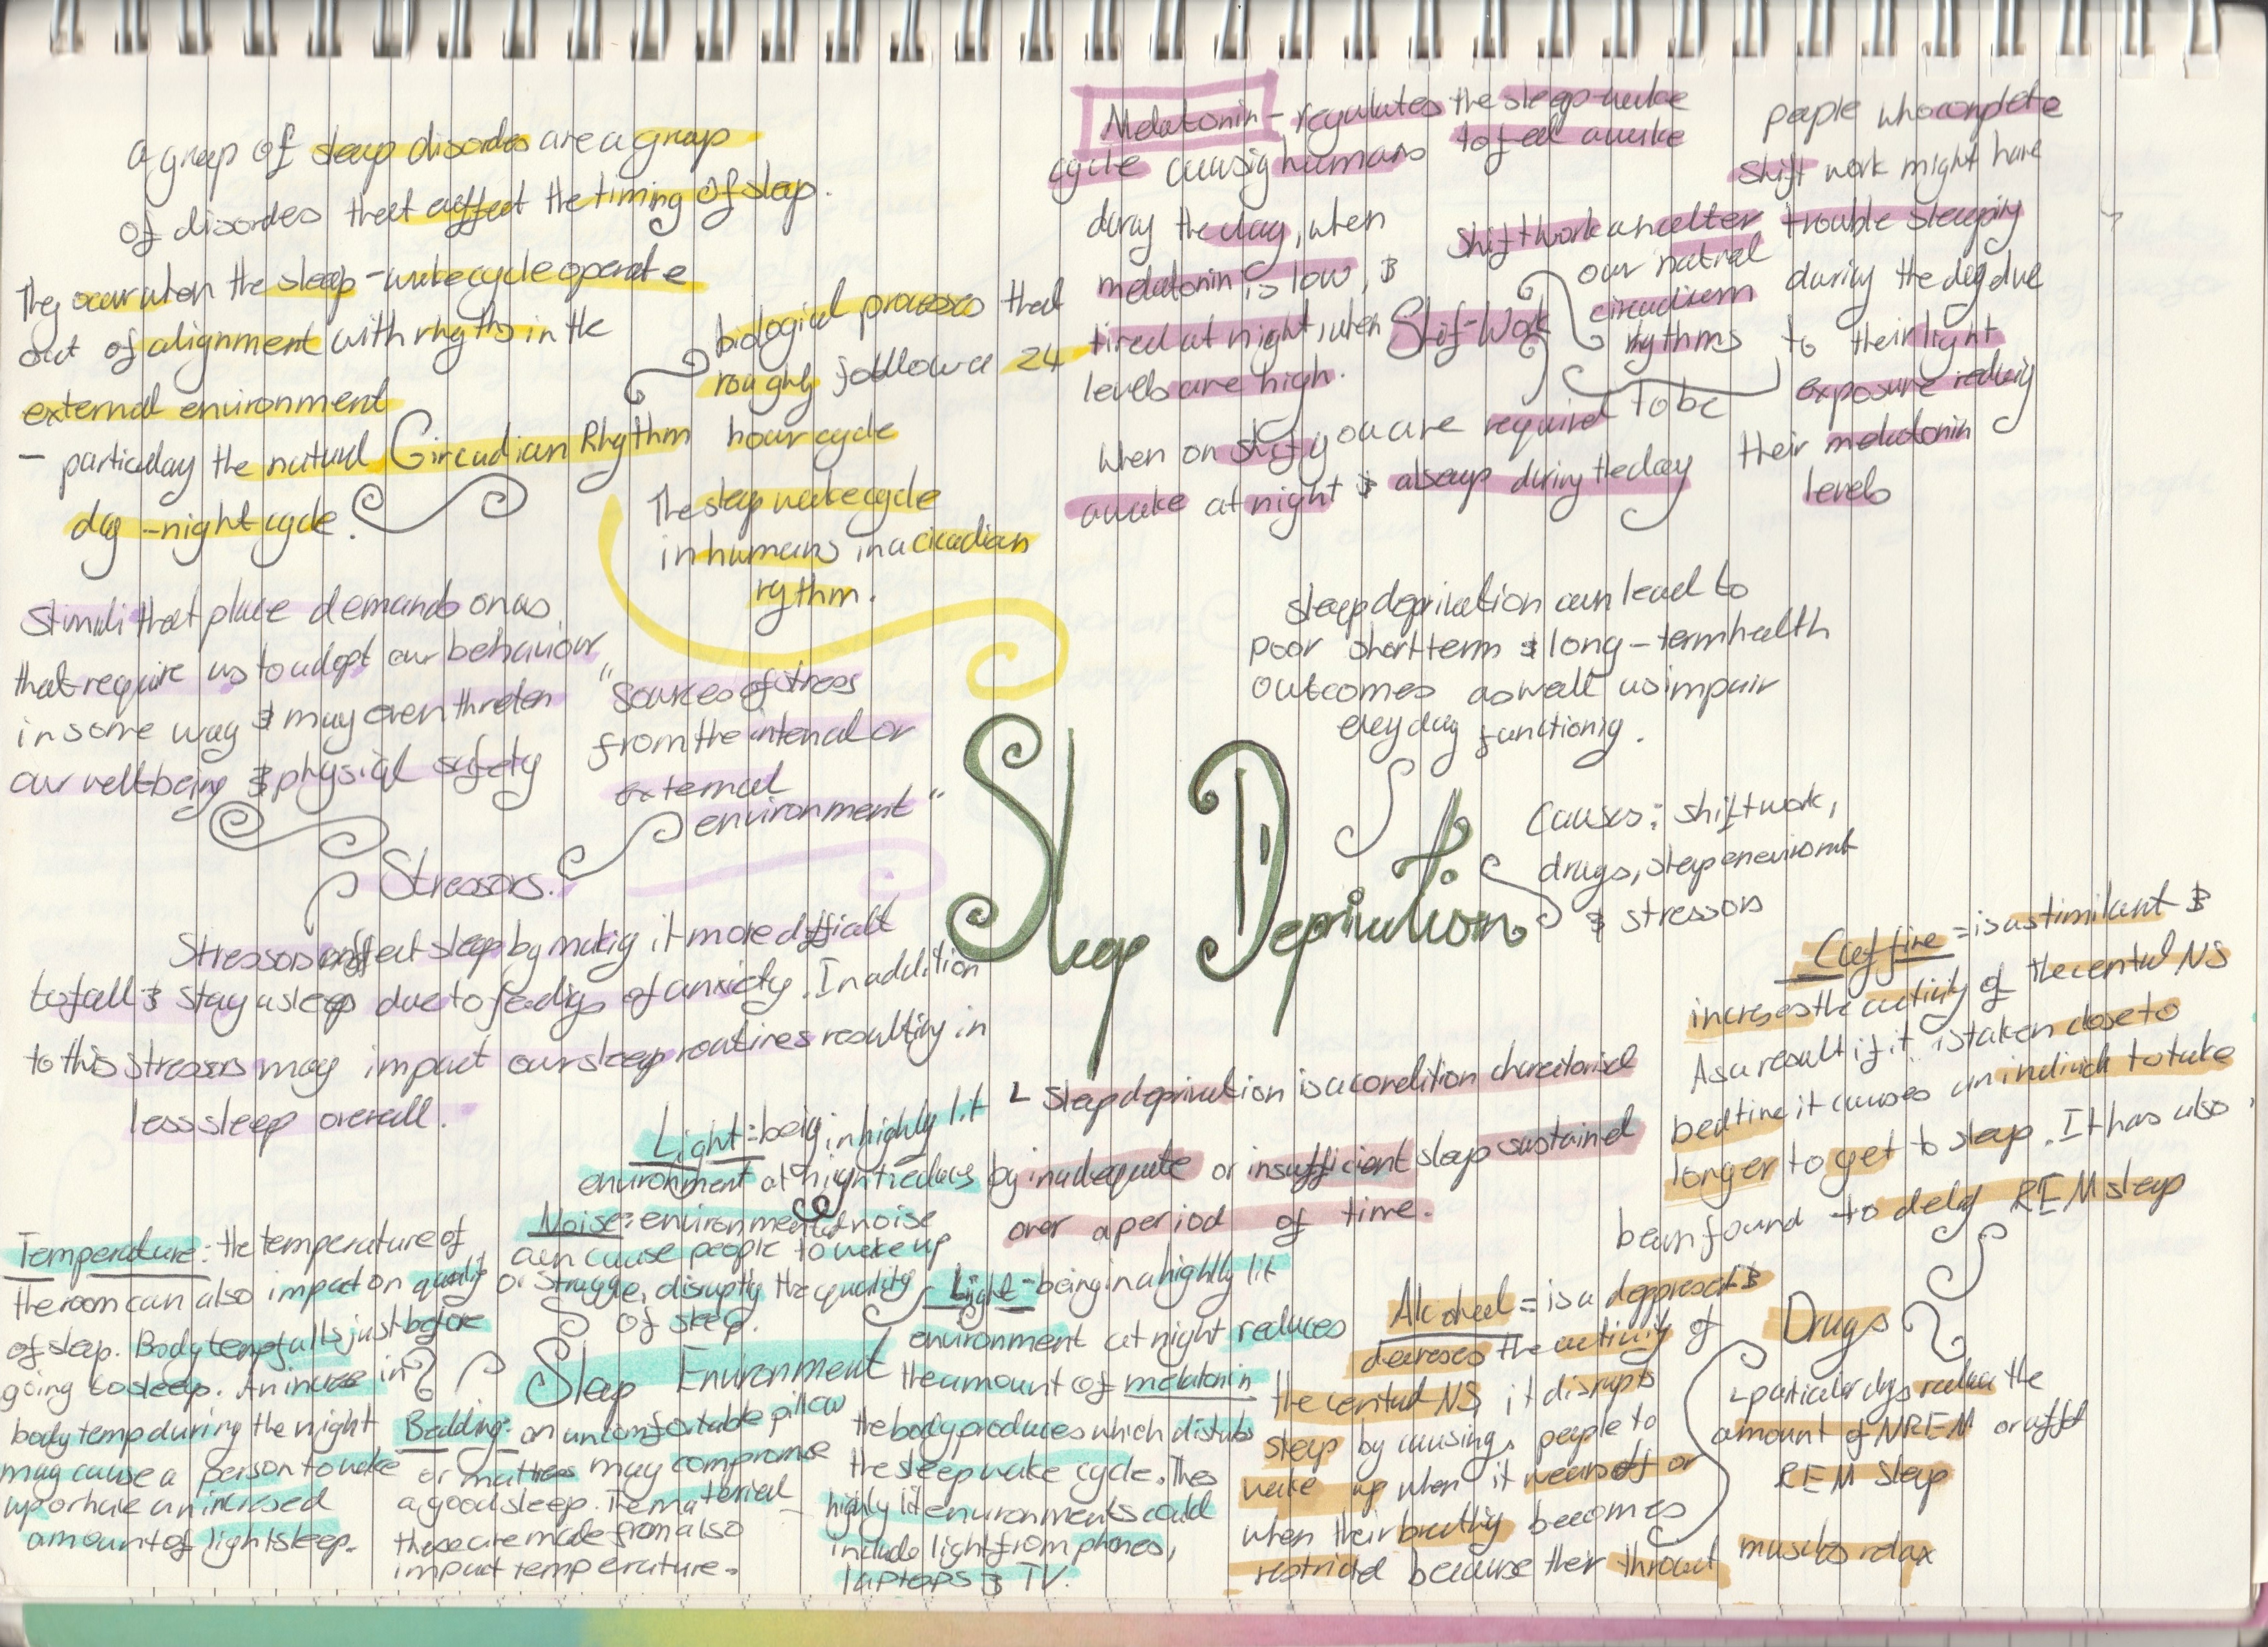 a group of sleep disordes are a group
of disordes that affect the timing of sleep.
They occur when the sleep-wake cycle operate
out of alignment with rhythms in the
external environment
- particulay the natural
day-night cycle.
Circadian Rhythm
biological processes that
roughly follow a 24
hour cycle
The sleep wake cycle
in humans in a cicadian
rythm.
Melatonin - regulates the sleep-wake
cycle causig humans to feel awake
durig the day, when
melatonin is low, &
tired at night, when
levels are high.
Shif-Work
Shift work can alter
our natral
circadium
rhythms
people who complete
shift work might have
trouble sleeping
during the day due
to their light
exposure reducig
their melatonin
levels
When on shift you are required to be
awake at night & alseep during the day
Stimuli that place demands on us
that require us to adapt our behaviour
in some way & may even threten
our well-being & physical safety
"Sources of stress
from the intenal or
external
environment"
Stressors.
Stressors affect sleep by makig it more difficult
to fall & stay asleep due to feeligs of anxiety. In addition
to this stressors may impact our sleep routines resulting in
less sleep overall.
Sleep Deprivation
sleep deprivation can lead to
poor short term & long-term health
outcomes as well as impair
everyday functionig.
Causes: shift work,
drugs, sleep environmt
& stressors
↳ Sleep deprivation is a condition charectorised
by inadequate or insufficient sleep sustained
over a period of time.
Caffine = is a stimilant &
increses the activity of the central NS
As a result if it is taken close to
bedtime it causes an individ to take
longer to get to sleep. It has also
been found to delay REM sleep
Drugs
↳ particular drgs reduce the
amount of NREM or afft
REM Sleep
Alcohol = is a deppresent &
decreses the activity of
the central NS, it disrupts
sleep by causing people to
wake up when it wears off or
when their breathig becomes
restricted because their throat muscles relax
Light: being in highly lit
environment at night reduces
Noise: environmental noise
can cause people to wake up
or struggle, disruptig the quality
of sleep.
Sleep Environment
Temperature: the temperature of
the room can also impact on quality
of sleep. Body temp falls just before
going to sleep. An increse in
body temp during the night
may cause a person to wake
up or have an incresed
amount of light sleep.
Bedding: an uncomfortable pillow
or mattres may compromise
a good sleep. The material
these are made from also
impact temperature.
Light - being in a highly lit
environment at night reduces
the amount of melatonin
the body produces which distubs
the sleep wake cycle. Thes
highly lit environments could
include light from phones,
laptops & TV.